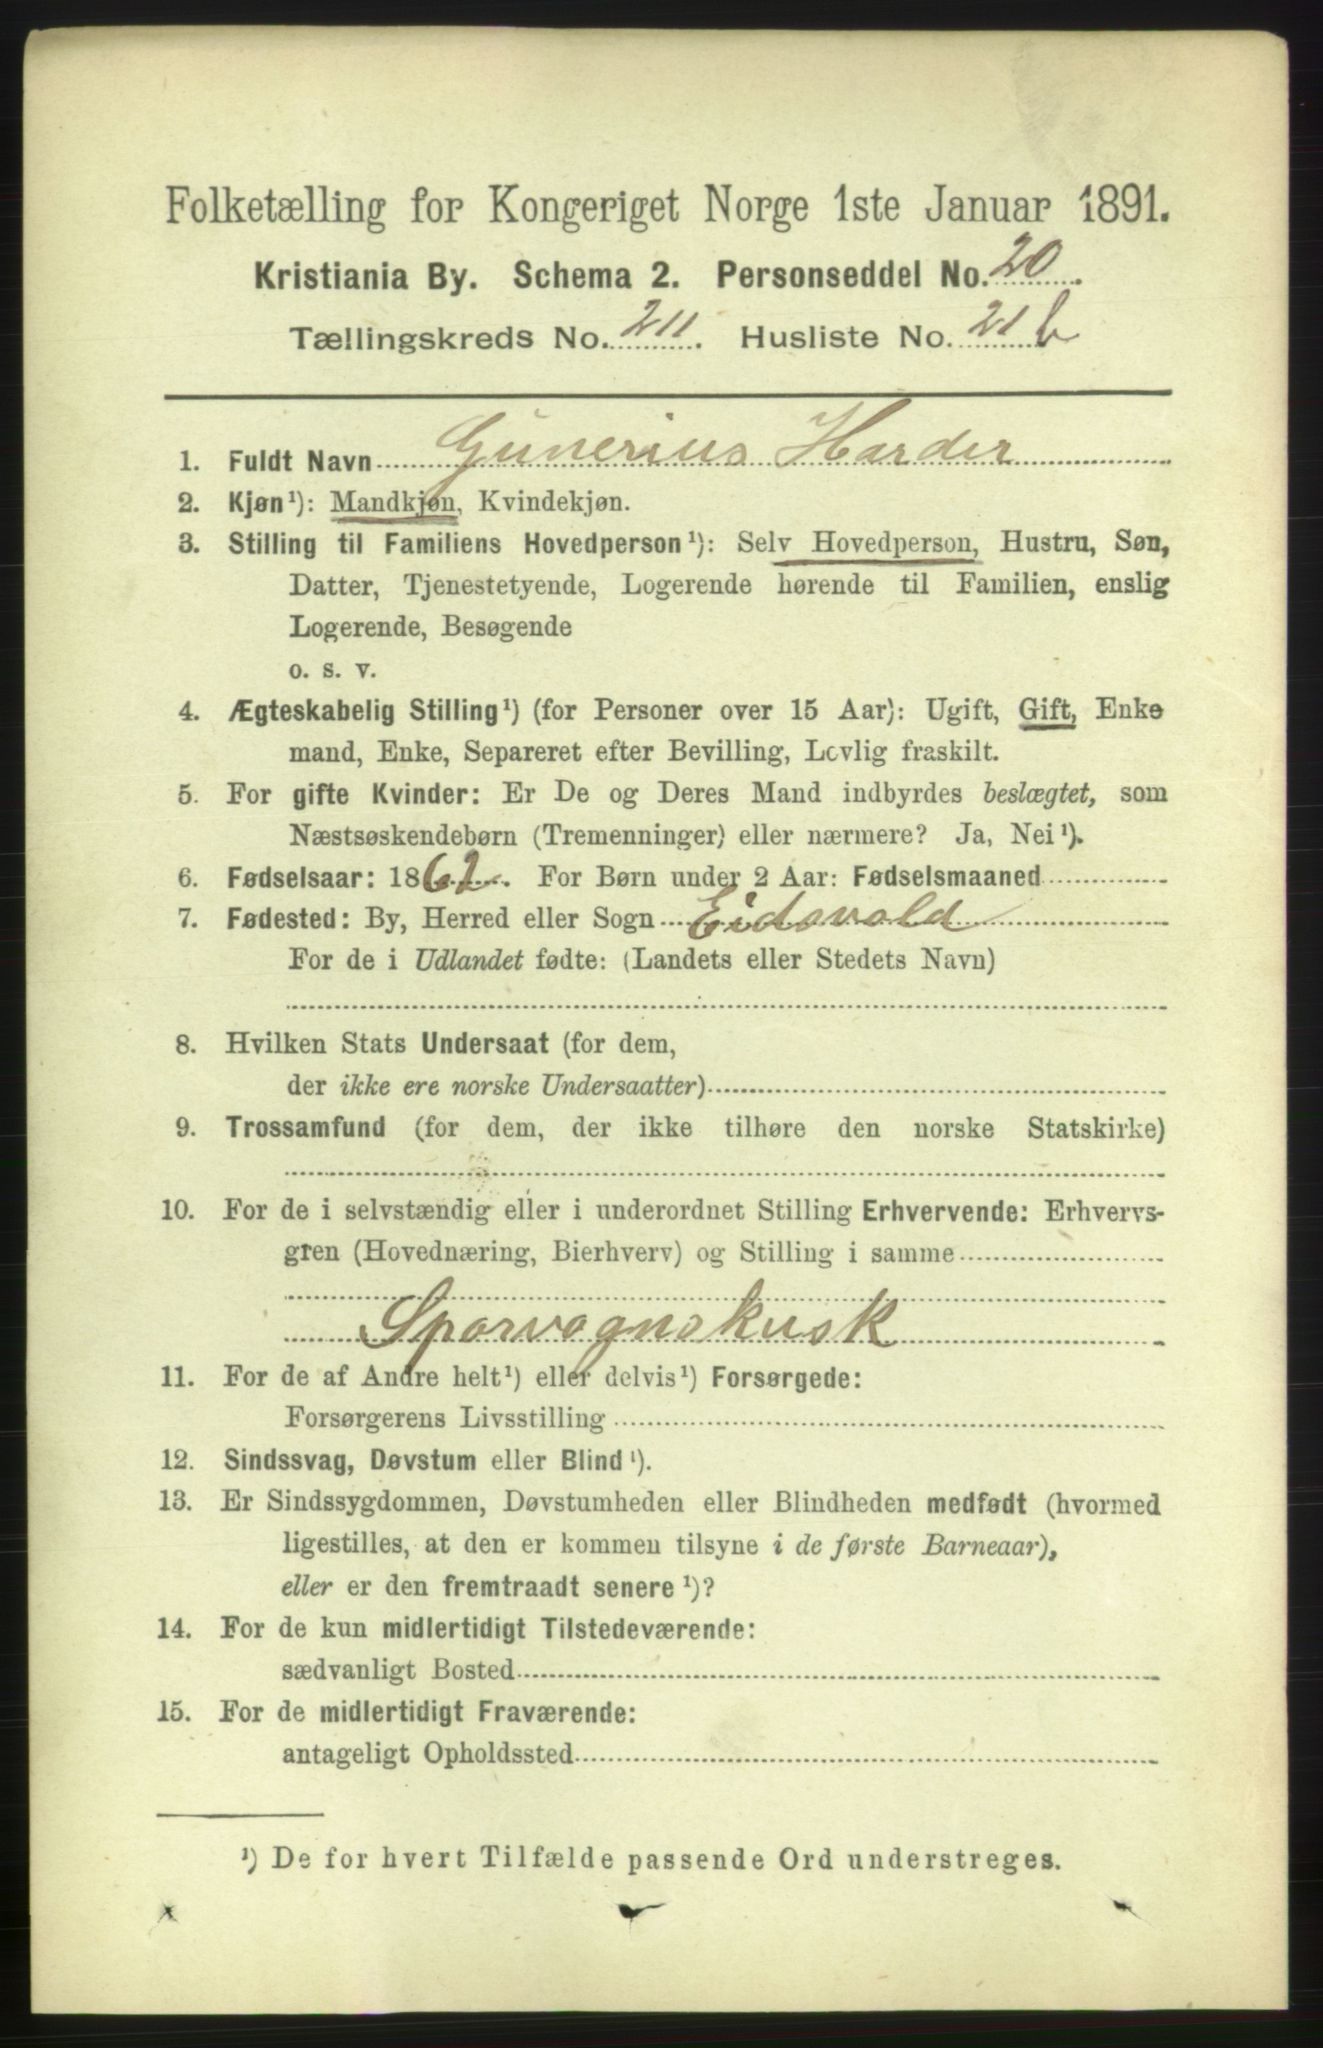 Folketælling for Kongeriget Norge 1ste Januar 1891.
Kristiania By. Schema 2. Personseddel No. 20.
Tællingskreds No. 211. Husliste No. 21 b
1. Fuldt Navn Gunerius Harder
2. Kjøn¹): Mandkjøn, Kvindekjøn.
3. Stilling til Familiens Hovedperson¹): Selv Hovedperson, Hustru, Søn,
Datter, Tjenestetyende, Logerende hørende til Familien, enslig
Logerende, Besøgende
o. s. v.
4. Ægteskabelig Stilling¹) (for Personer over 15 Aar): Ugift, Gift, Enke
mand, Enke, Separeret efter Bevilling, Lovlig fraskilt.
5. For gifte Kvinder: Er De og Deres Mand indbyrdes beslægtet, som
Næstsøskendebørn (Tremenninger) eller nærmere? Ja, Nei¹).
6. Fødselsaar: 1862. For Børn under 2 Aar: Fødselsmaaned
7. Fødested: By, Herred eller Sogn Eidsvold
For de i Udlandet fødte: (Landets eller Stedets Navn)
8. Hvilken Stats Undersaat (for dem,
der ikke ere norske Undersaatter)
9. Trossamfund (for dem, der ikke tilhøre den norske Statskirke)
10. For de i selvstændig eller i underordnet Stilling Erhvervende: Erhvervs-
gren (Hovednæring, Bierhverv) og Stilling i samme
Sporvognskusk
11. For de af Andre helt¹) eller delvis¹) Forsørgede:
Forsørgerens Livsstilling
12. Sindssvag, Døvstum eller Blind¹).
13. Er Sindssygdommen, Døvstumheden eller Blindheden medfødt (hvormed
ligestilles, at den er kommen tilsyne i de første Barneaar),
eller er den fremtraadt senere¹)?
14. For de kun midlertidigt Tilstedeværende:
sædvanligt Bosted
15. For de midlertidigt Fraværende:
antageligt Opholdssted
¹) De for hvert Tilfælde passende Ord understreges.